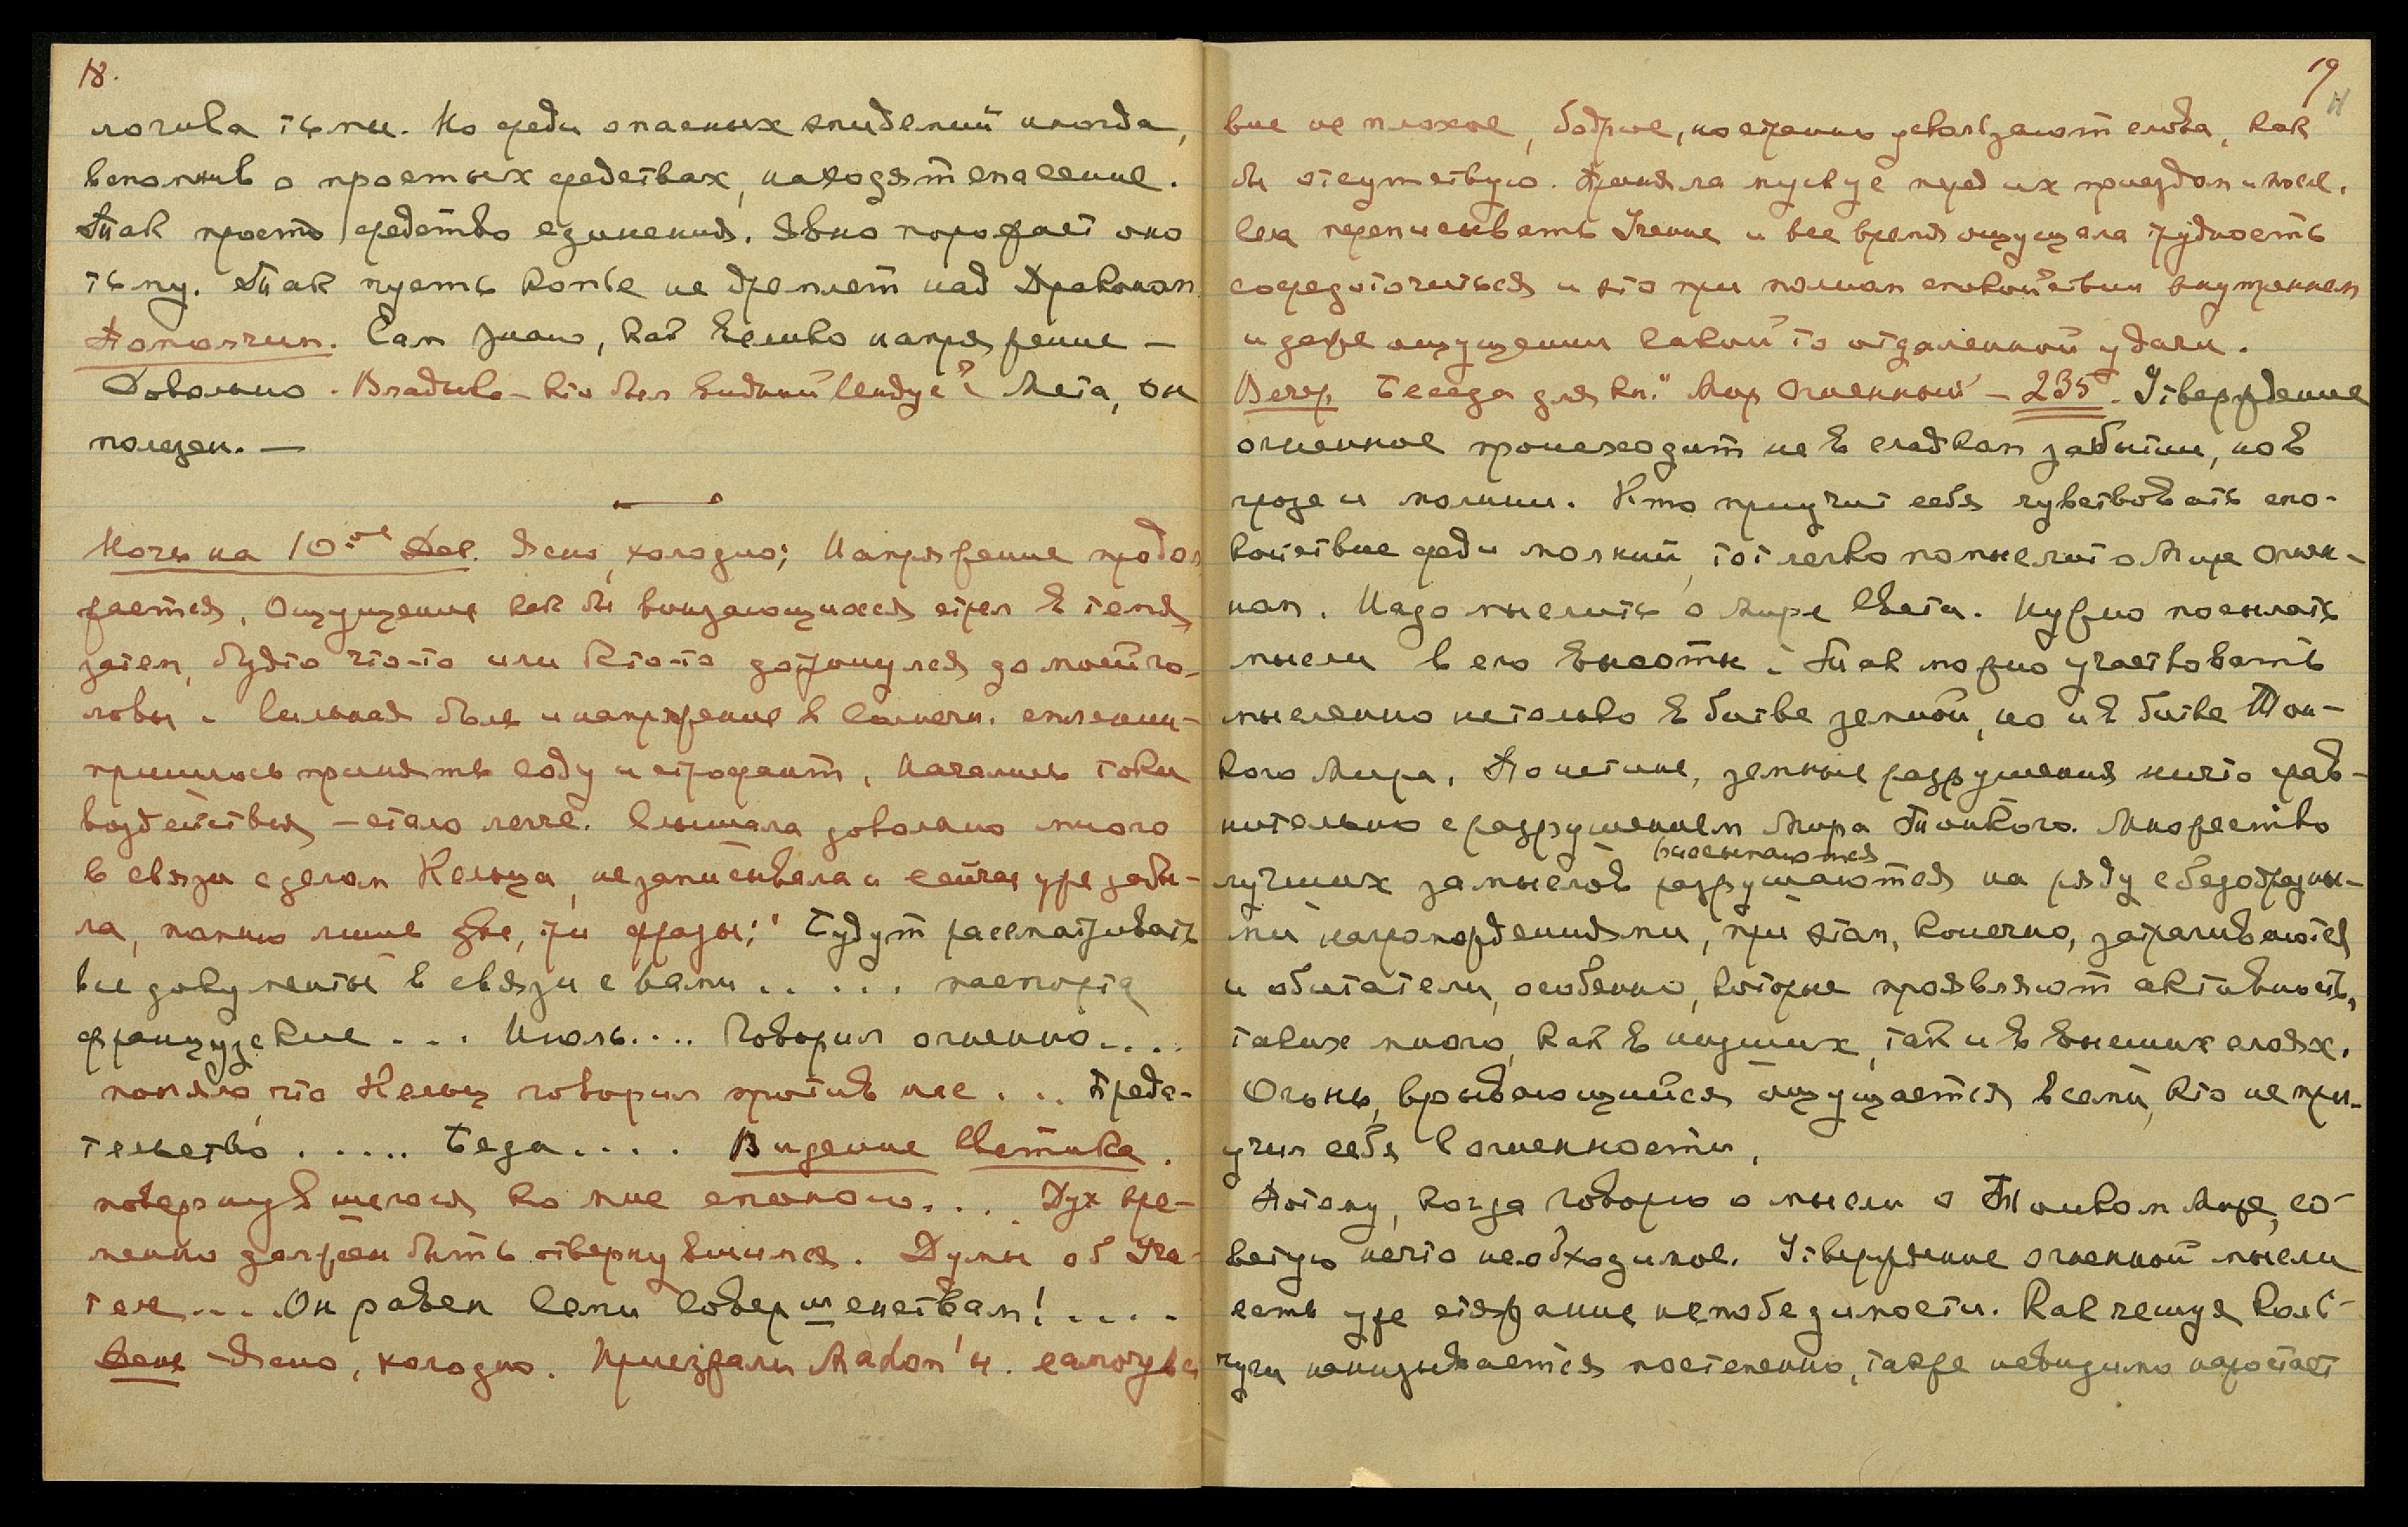 18.
логива тьмы. Но среди опасных эпидемий иногда,
вспомнив о простых средствах, находят спасение.
Так просто средство единения. Явно поражает оно
тьму. Так пусть копье не дремлет над Драконом
Помолчим. Сам знаю, как велико напряжение —
Довольно. Владыка – кто был видный индус? Мета, он
полезен. —
Ночь на 10-ое Дек. Ясно, холодно; Напряжение продол
жается, Ощущение как бы вонзающихся стрел в темя,
затем, будто что-то или кто-то дотронулся до моей го-
ловы. Сильная боль и напряжение в солнечн. сплетении-
пришлось принять соду и строфант, Начались токи
воздействия – стало легче. Слышала довольно много
в связи с делом Кельца, не записывала и сейчас уже забы-
ла, помню лишь две, три фразы; "Будут рассматривать
все документы в связи с вами ..... паспорта
французские ... Июль.... Говорил огненно....
поняла, что Кельц говорил против нее ... Преда-
тельство ..... Беда .... Видение Светика.
повернувшегося ко мне спиною.... Дух вре-
менно должен быть отвернувшимся. Думы об Учи-
теле.... Он равен Семи Совершенствам! ....
День – Ясно, холодно. Приезжали Mahon'ы. самочувст
19
вие не плохое, бодрое, но странно ускользают слова, как
бы отсутствую. Приняла мускус перед их приездом и после.
Села переписывать Учение и все время ощущала трудность
сосредоточиться и это при полном спокойствии внутреннем
и даже ощущении какой то отдаленной удачи.
Вечер. Беседа для кн. "Мир Огненный – 235. Утверждение
огненное происходит не в сладком забытии, но в
грозе и молнии. Кто приучит себя чувствовать спо-
койствие среди молний, тот легко помыслит о Мире Огнен-
ном. Надо мыслить о Мире Света. Нужно посылать
мысли в его высоты. Так можно участвовать
мысленно не только в битве земной, но и в битве Тон-
кого Мира. Поистине, земные разрушения ничто срав-
нительно с разрушением Мира Тонкого. Множество
рассыпаются
лучших замыслов разрушаются на ряду с безобразны-
ми нагромождениями, при этом, конечно, затрагиваются
и обитатели, особенно, которые проявляют активность,
таких много, как в низших, так и в высших слоях.
Огонь, врывающийся ощущается всеми, кто не при-
учил себя к огненности.
Потому, когда говорю о мысли о Тонком Мире, со-
ветую нечто необходимое. Утверждение огненной мысли
есть уже стяжание непобедимости. Как чешуя коль-
чуги нанизывается постепенно, также невидимо нарастает